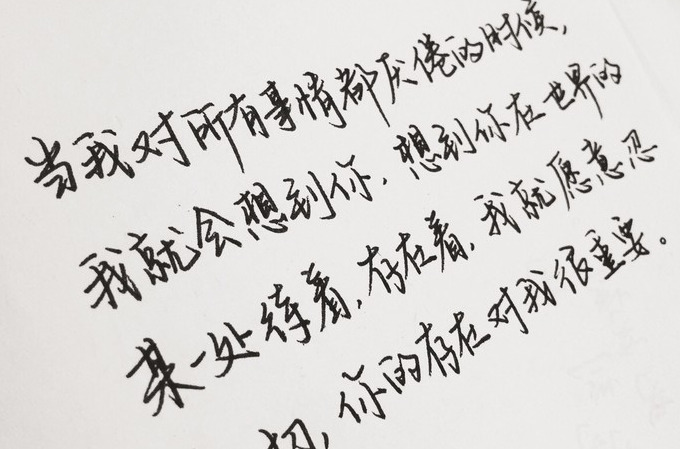 当我对所有事情都厌倦的时候,
我就会想到你,想到你在世界的
某一处待着,存在着,我就愿意忍
切,你的存在对我很重要。